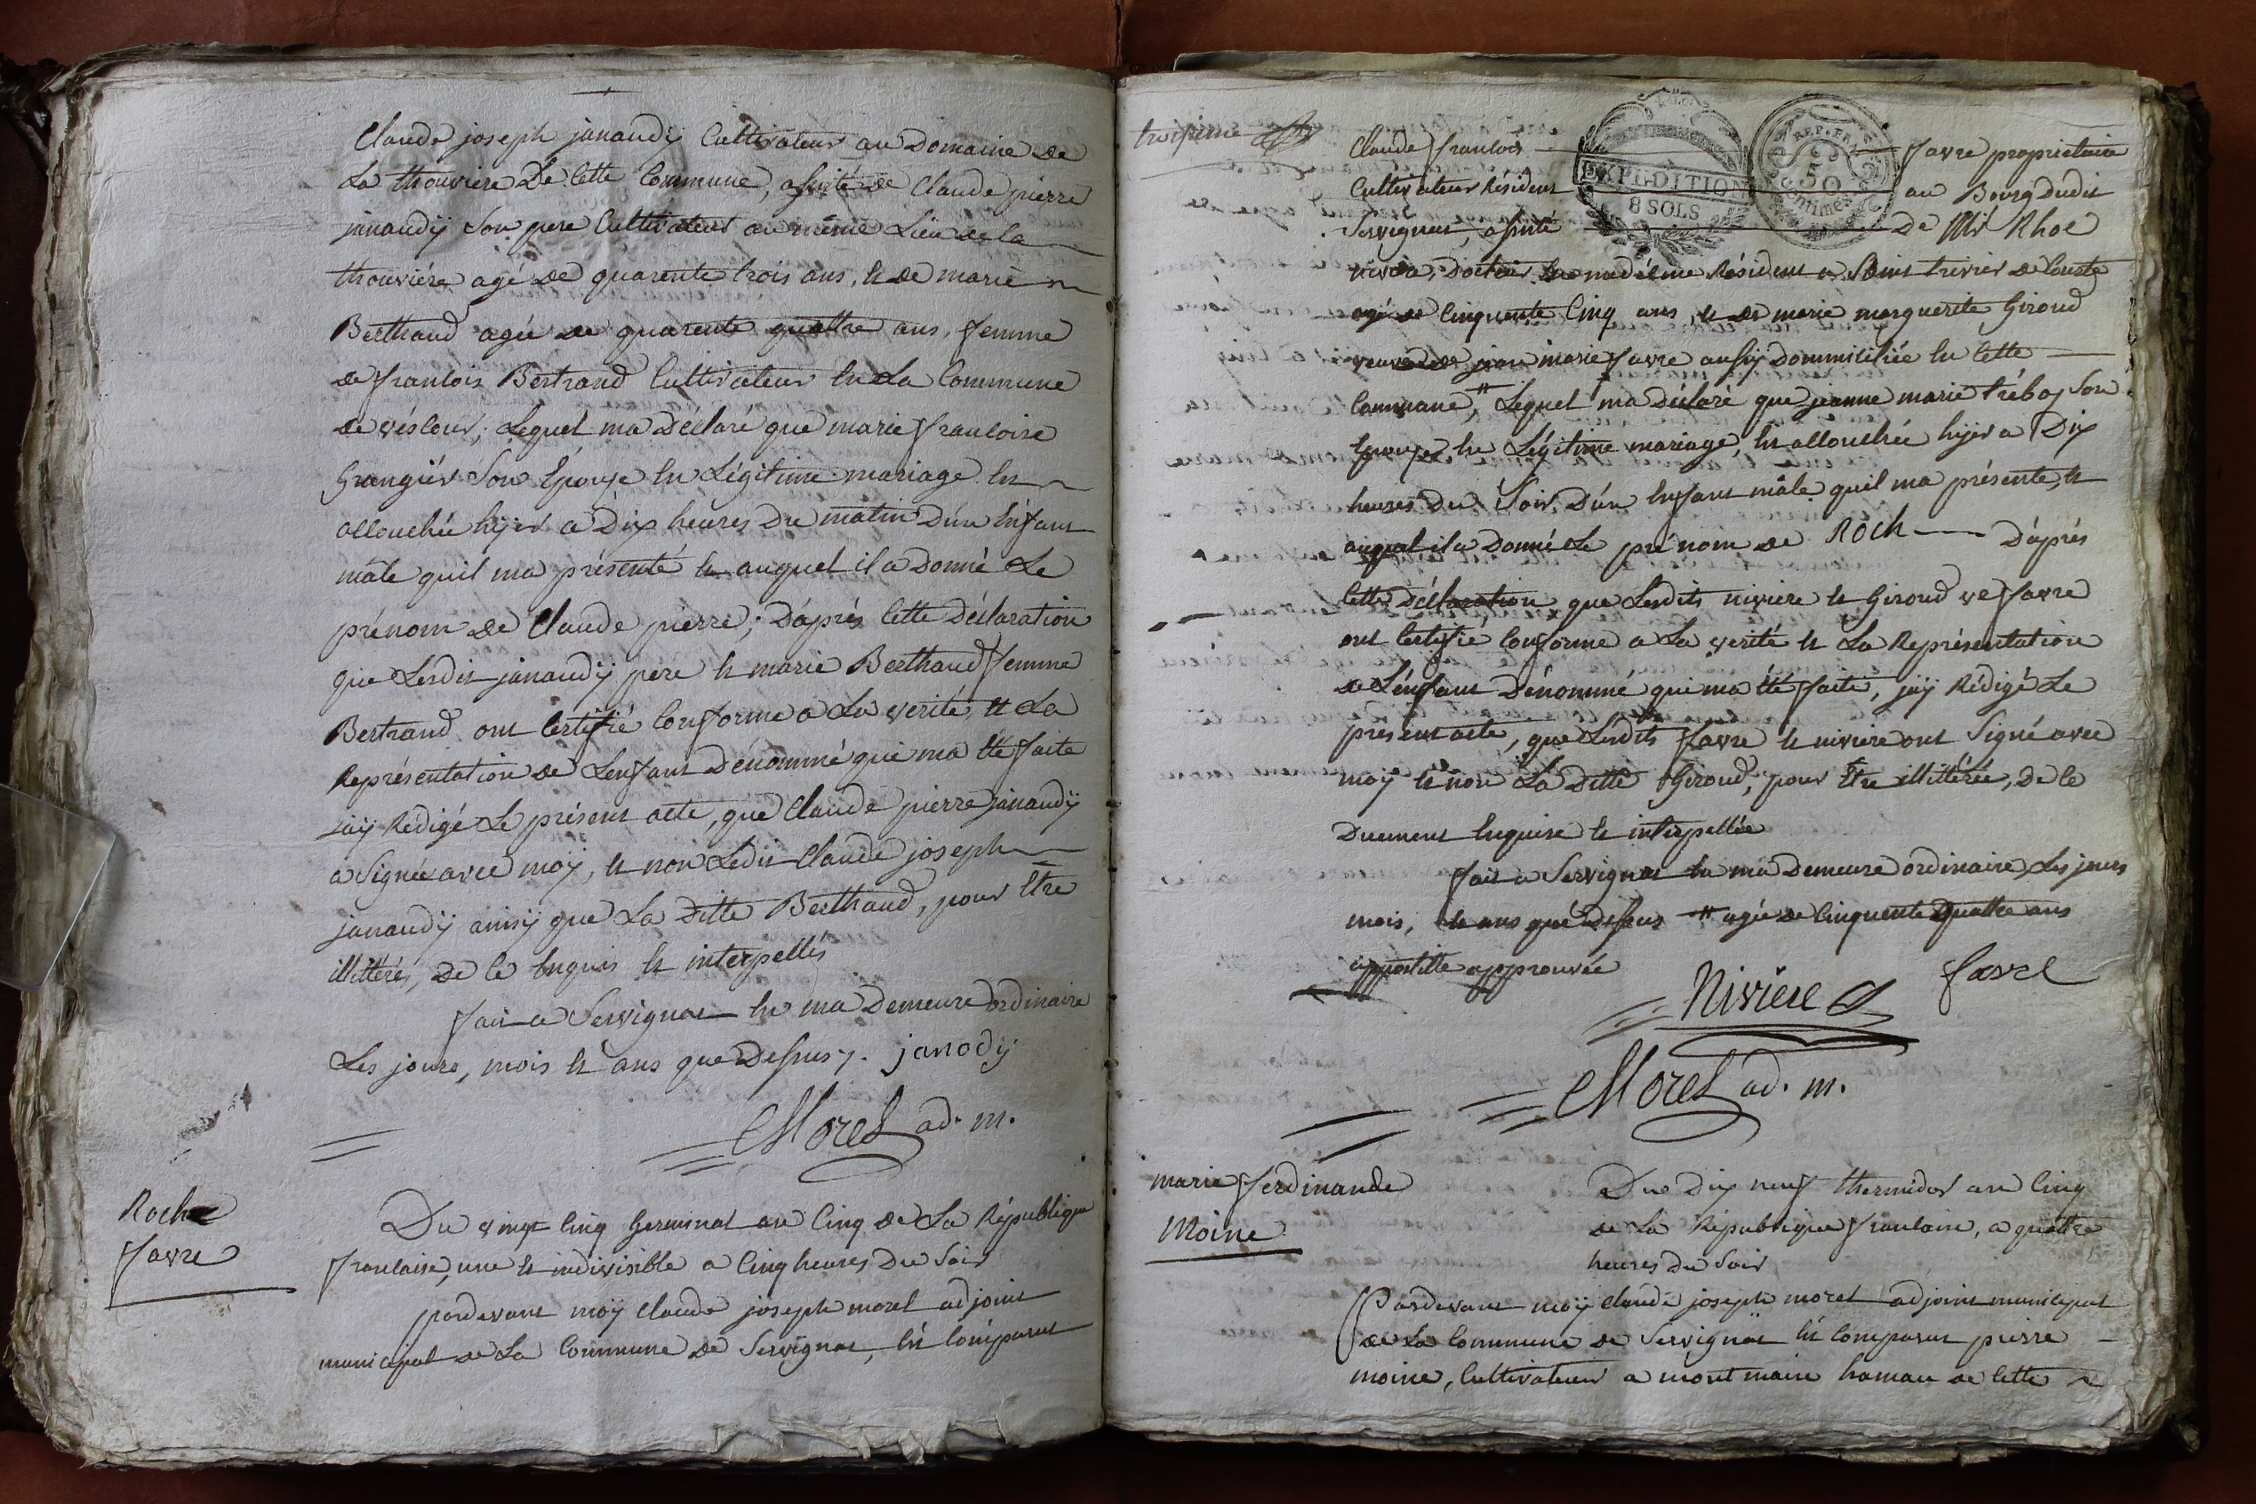 Claude joseph janaudÿ Cultivateur au Domaine de
La thouviere De Cette Commune, assisté de Claude pierre
janaudÿ Son pere Cultivateur au même Lieu de la
thouviére agé de quarente trois ans, et de marie
Berthaud agée de quarente quattre ans, femme
de francois Bertrand Cultivateur en La Commune
de véscour, Lequel ma déclaré que marie francoise
Grangiér Son Epouse en Légitime mariage est
accouchée hÿer a Dix heures Du matin D'un Enfant
mâle quil ma présenté et auquel il a Donné Le
prénom de Claude pierre; D'après Cette Déclaration
que Lesdit janaudÿ pere et marie Berthaud femme
Bertrand ont Certifié Conforme a La verité, et La
Représentation de Lenfant Dénommé qui ma été faite
jaÿ Rédigé Le présent acte, que Claude pierre janaudÿ
a Signée avec moÿ, et non Ledit Claude joseph
janaudÿ ainsÿ que La Ditte Berthaud, pour Etre
illittérés, De Ce Enquis et interpellés
fait a Servignat en ma Demeure ordinaire
Les jours, mois et ans que Dessus. janodÿ
Morel ad. m.
Roch
favre
Du vingt Cinq Germinal an Cinq de La République
francaise, une et indivisible a Cinq heures Du Soir
pardevant moÿ Claude joseph morel adjoint
municipal de La Commune de Servignat, Est Comparut
troisieme
Claude francois favre propriétaire
Cultivateur Résident au Bourg dudit
Servignat, assisté De Rhoc
EXPEDITION
8 SOLS
REP. FRA
50
Centimes
niviere, Docteur en medecine Résident a Saint trivier de Courte
agé de Cinquente Cinq ans, et de marie marguerite Giroud
veuve de jean marie favre aussÿ Dommiciliée En Cette
Commune, # Lequel ma Déclaré que jeanne marie Son
Epouse en Légitime mariage, Est accouchée hÿer a Dix
heures Du Soir D'un Enfant mâle quil ma présenté, et
auquel il a Donné Le prénom de Roch D'après
Cette Déclaration que Lesdits niviere et Giroud ve favre
ont Certifié Conforme a La verité et La Représentation
de L'énfant Dénommé qui ma été faite, jaÿ Rédigé Le
présent acte, que Lesdits favre et niviere ont Signé avec
moÿ et non La Ditte Giroud, pour Etre illittérée, De Ce
Duement Enquise et interpellée
fait a Servignat En ma Demeure ordinaire Les jours
mois, et ans que Dessus # agée de Cinquente Quattre ans
appostille approuvée
Nivière favre
Morel ad. m.
marie ferdinande
Moine
Du Dix neuf thermidor an Cinq
de La République francaise, a quattre
heures Du Soir
Pardevant moÿ Claude joseph morel adjoint municipal
de La Commune de Servignat Est Comparut pierre
moine, Cultivateur a mont hamau de Cette